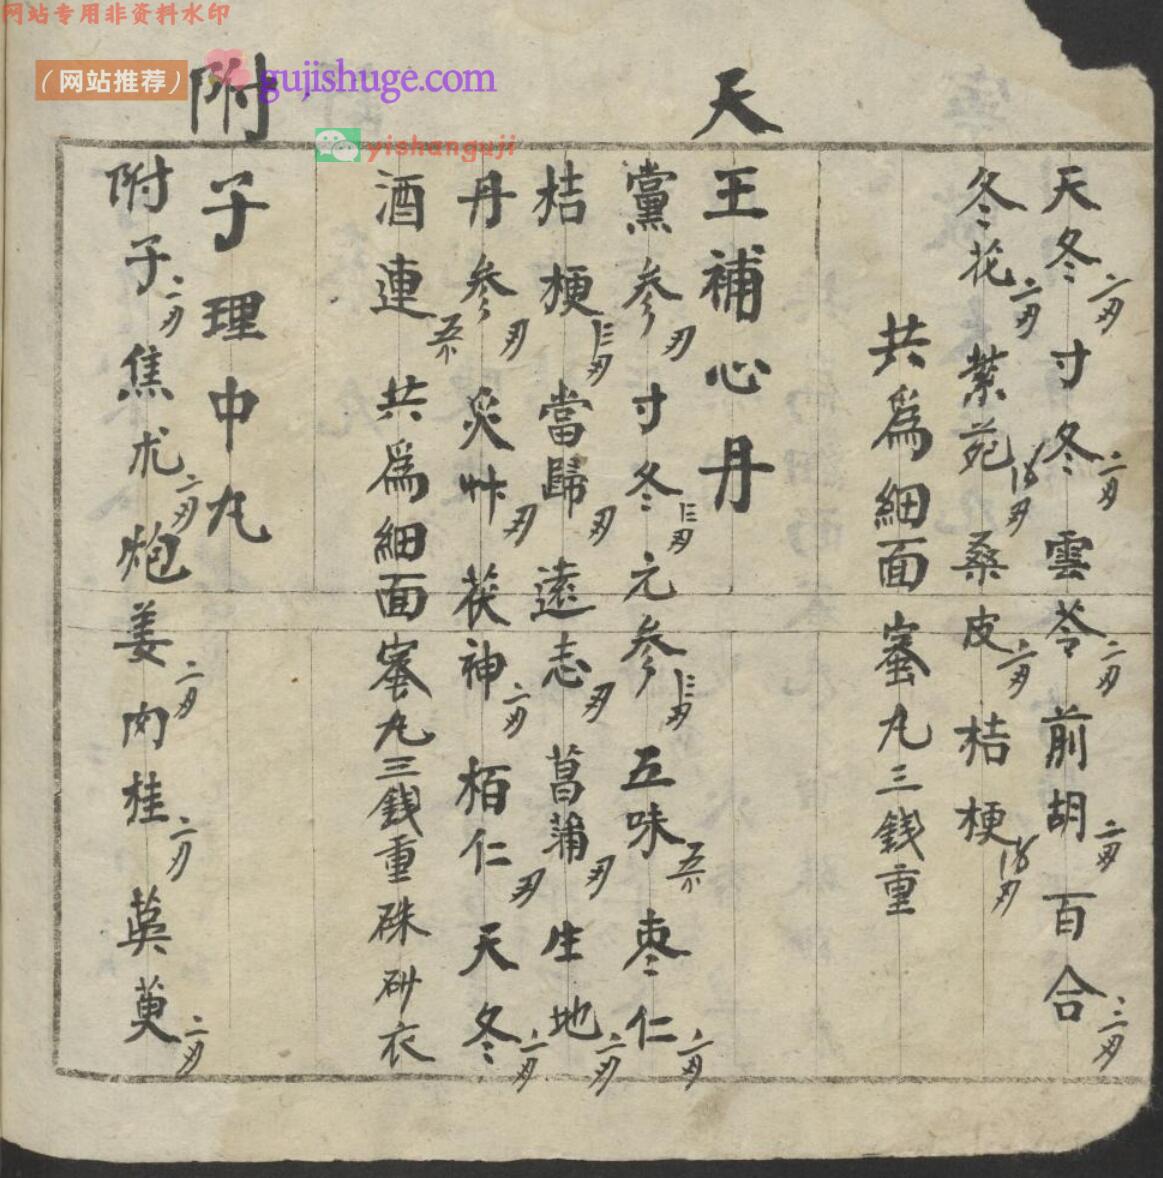 网站专用非资料水印
（网站推荐）
gujishuge.com
yishanguji
天冬二两寸冬二两雲苓二两前胡二两百合二两
冬花二两紫菀桑皮二两桔梗
共爲細面蜜丸三錢重
天王補心丹
黨参两寸冬元参五味枣仁二两
桔梗當歸两遠志两菖蒲两生地二两
丹参两炙艸两茯神二两栢仁两天冬二两
酒連共爲細面蜜丸三錢重硃砂衣
附子理中丸
附子二两焦术二两炮姜二两肉桂二两萸